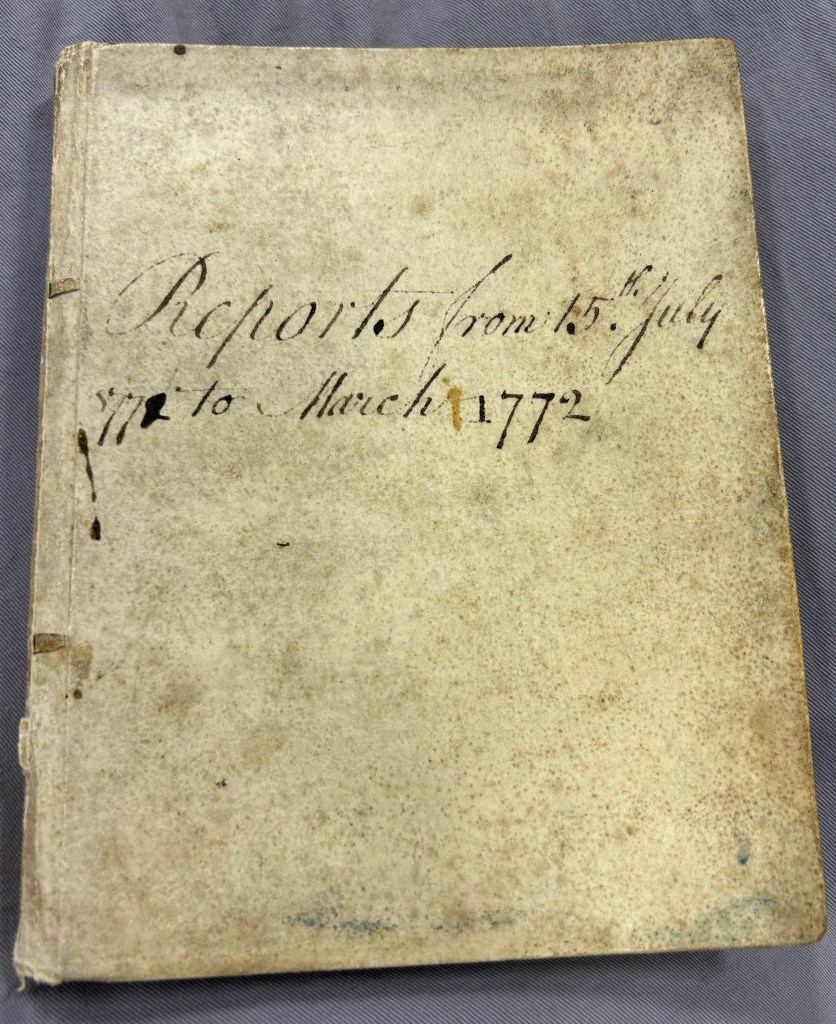 Reports from 15.th July
to March 1772